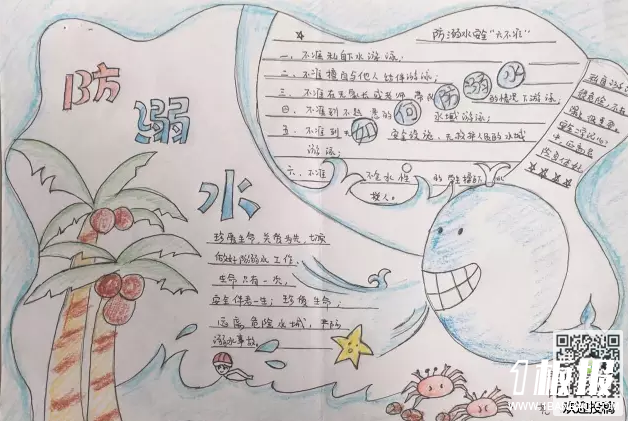 防
溺
水
防溺水安全"六不准"
一、不准私自下水游泳；
二、不准擅自与他人结伴游泳；
三、不准在无家长或老师带队的情况下游泳；
四、不准到不熟悉的水域游泳；
五、不准到无安全设施、无救护人员的水域
游泳；
六、不准不会水性的学生擅自下水
救人。
如何防溺水
珍爱生命，关爱为先，切实
做好防溺水工作，
生命只有一次，
安全伴着一生；珍爱生命；
远离危险水域，
溺水事故。
1板报
WWW.1BANBAO.COM
欢迎投稿